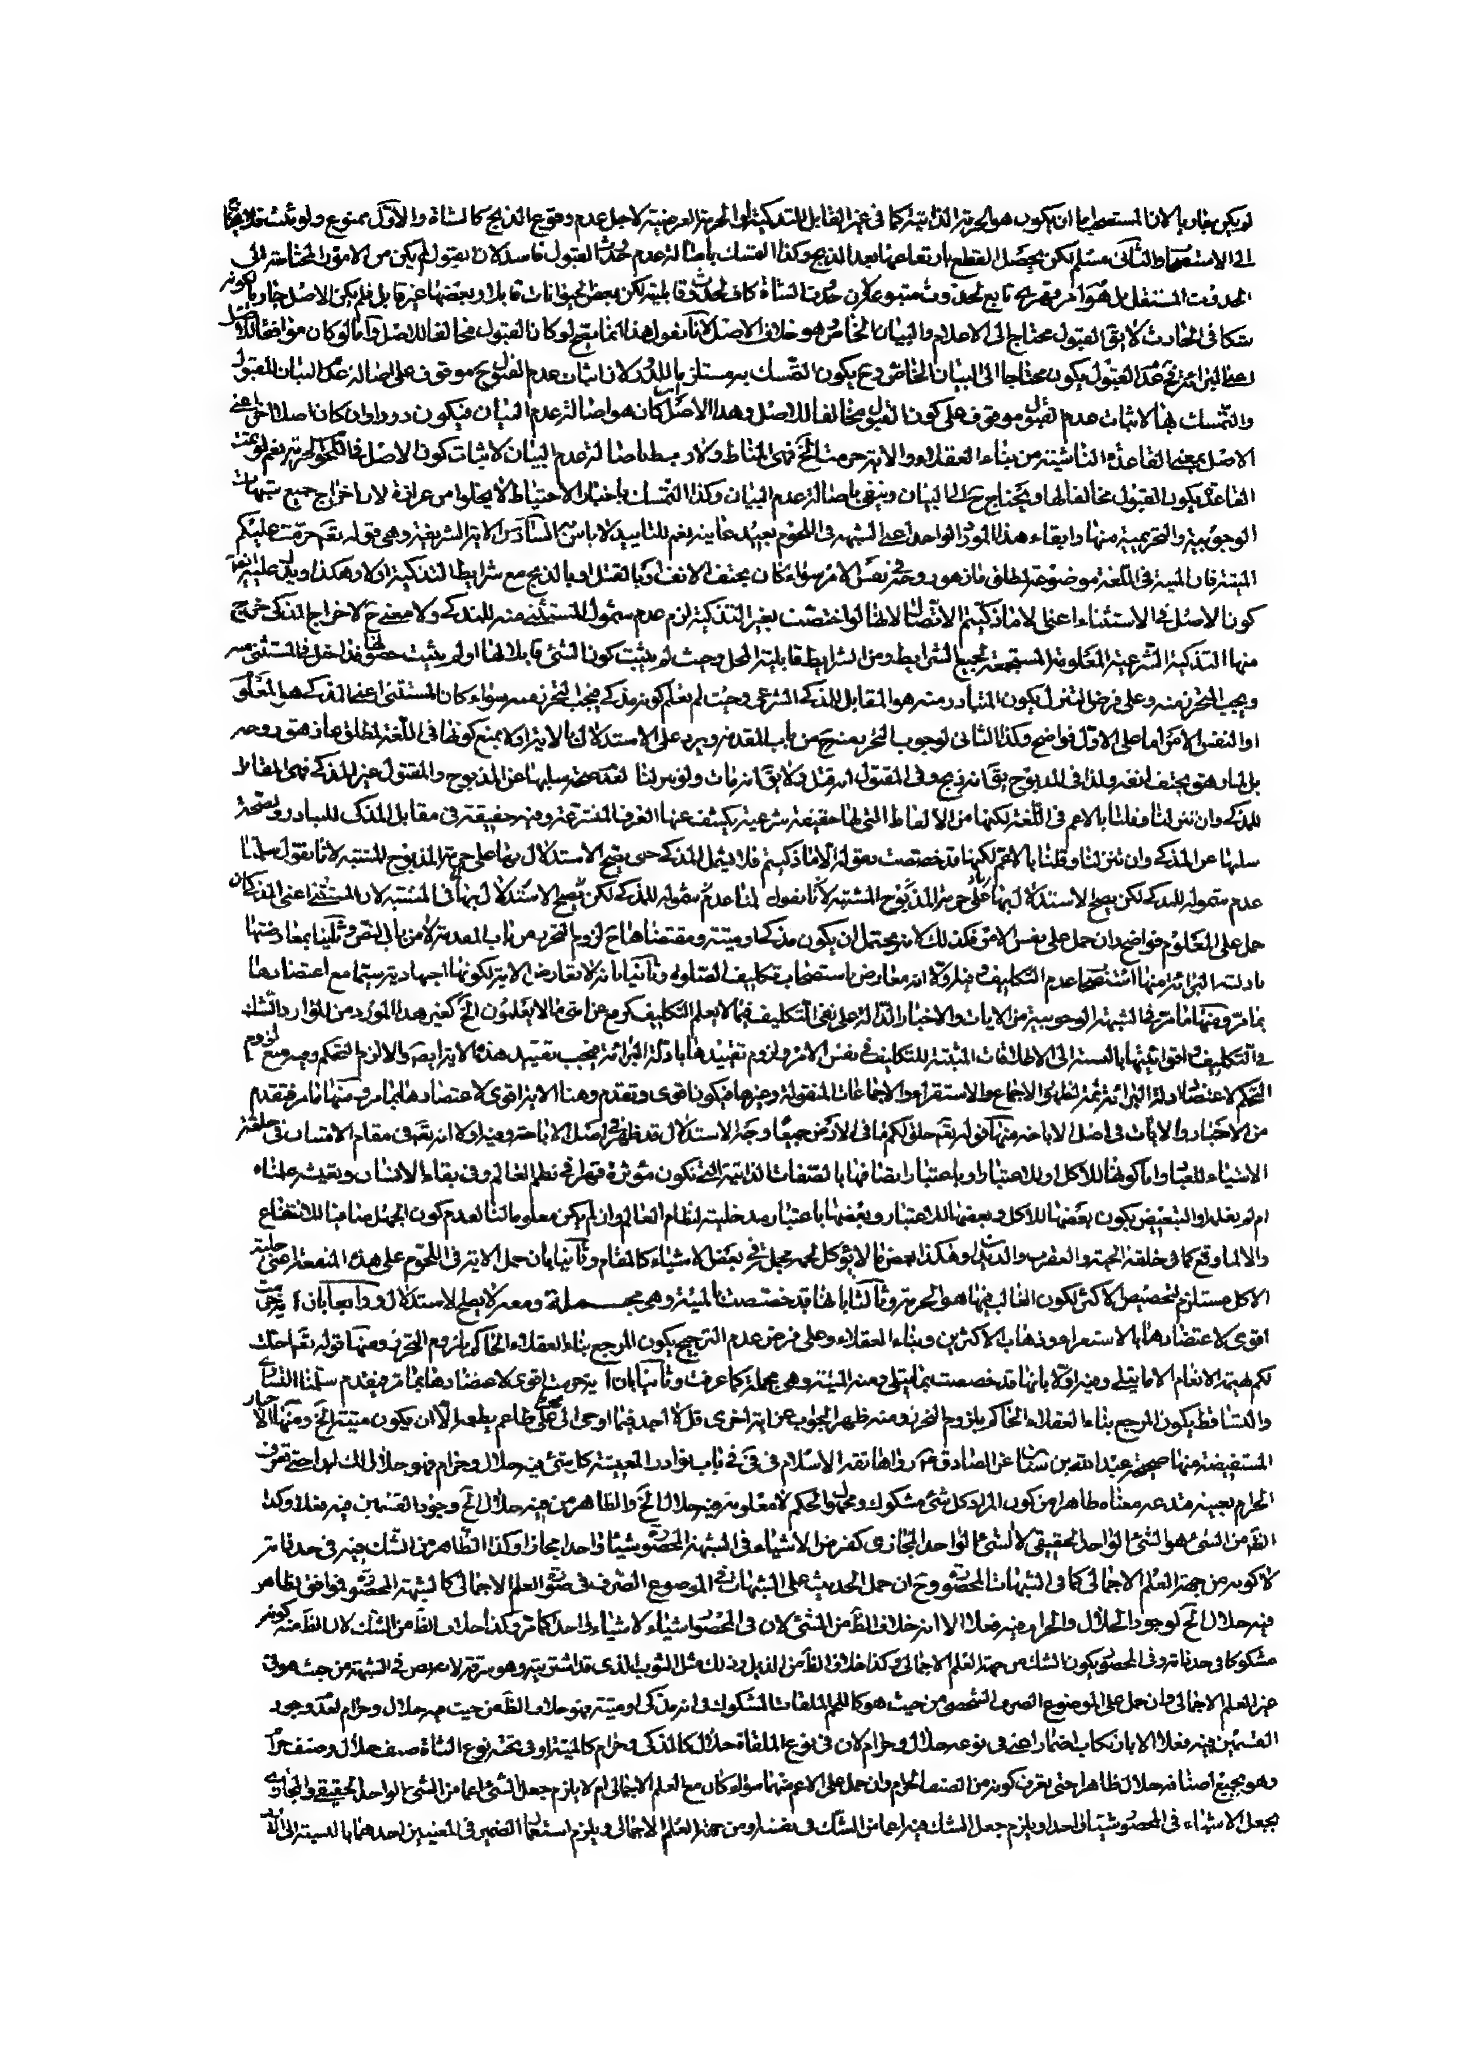 لم يكن جاريا لان المستصحب اما ان يكون هو الحرمة الذاتية كما في غير القابل للتذكية او الحرمة العرضية لاجل عدم وقوع الذبح كالشاة والاول ممنوع ولو شك فلا
الى الاستصحاب الثاني مسلم لكن يحصل القطع بارتفاعها بعد الذبح وكذا التمسك باصالة عدم حدوث القبول فاسد لان القبول لم يكن من الامور المحتاجة الى
الحدوث المستقل بل هو امر قهري تابع لحدوث متبوعه لان حدوث الشاة كاف لحدوث قابليته لكن بعض الحيوانات قابل وبعضها غير قابل فلم يكن الاصل جاريا لكونه
شكا في الحادث لا يق القبول محتاج الى الاعلام والبيان الخاص هو خلاف الاصل لانا نقول هذا انما يصح لو كان القبول مخالفا للاصل واما لو كان موافقا للاصل
يكون محتاجا الى البيان الخاص وح يكون التمسك به مستلزما للدور لان اثبات عدم القبول ح موقوف على اصالة عدم البيان للقبول
والتمسك بها لاثبات عدم القبول موقوف على كون القبول مخالفا للاصل وهذا الاصل ان كان هو اصالة عدم البيان فيكون دورا وان كان اصلا اخر اعني
الاصل بمعنى القاعدة الناشئة من بناء العقلاء والاية حرمت الخ فهي المناط ولا ربط باصالة عدم البيان لاثبات كون الاصل في اللحوم الحرمة نعم لو تمت
القاعدة يكون القبول مخالفا لها ويحتاج ح الى البيان وينفي باصالة عدم البيان وكذا التمسك باخبار الاحتياط لا يخلوا من غرابة لان اخراج جميع شبهات
الوجوبية والتحريمية منها وابقاء هذا المورد الواحد اعني الشبهة في اللحوم بعيد غايته نعم للتاييد لا باس به السادس الاية الشريفة وهي قوله تعم حرمت عليكم
الميتة فان الميتة في اللغة موضوعة لمطلق ما زهق روحه في نفس الامر سواء كان بحتف الانف او بالقتل او بالذبح مع شرايط التذكية اولا وهكذا ويدل عليه ايضا
كون الاصل في الاستثناء اعني الا ما ذكيتم الاتصال لانها لو اختصت بغير التذكية لزم عدم شمول المستثنى منه للمذكى ولا معنى ح لاخراج المذكى خرج
منها التذكية الشرعية المعلومة المستجمعة لجميع الشرايط ومن الشرايط قابلية المحل وحيث لم يثبت كون الشئ قابلا لها او لم يثبت حصولها فداخل في المستثنى منه
ويجب التحرز منه وعلى فرض التنزل يكون المتبادر منه هو المقابل للمذكى الشرعي وحيث لم يعلم كونه مذكى فيجب التحرز منه سواء كان المستثنى اعني المذكى هو المعلوم
او النفس الامر اما على الاول فواضح وكذا الثاني لوجوب التحرز منه ح من باب المقدمة ويرد على الاستدلال بالاية اولا بمنع كونها في اللغة لمطلق ما زهق روحه
بل لما زهق بحتف انفه ولذا في المذبوح يق انه ذبح وفي المقتول انه قتل ولا يق انه مات ولو سلمنا لغة صحة سلبها عن المذبوح والمقتول غير المذكى فهي المقابل
للمذكى وان تنزلنا وقلنا بالاعم في اللغة لكنها من الالفاظ التي لها حقيقة شرعية يكشف عنها العرف المتشرعة وفيه حقيقة في مقابل المذكى للتبادر ولصحة
سلبها عن المذكى وان تنزلنا وقلنا بالاعم لكنها قد خصصت بقوله الا ما ذكيتم فلا يشمل المذكى حتى يصح الاستدلال بها على حرمة المذبوح المشتبه لا نقول سلمنا
عدم شموله للمذكى لكن يصح الاستدلال بها على حرمة المذبوح المشتبه لانا نقول لمنا عدم شموله للمذكى لكن يصح الاستدلال بها في المشتبه لان المستثنى اعني المذكى ان كان
حمل على المعلوم فواضح وان حمل على نفس الامر فكذلك لانه محتمل ان يكون مذكى او ميتة ومقتضاها ح لزوم التحرز من باب المقدمة لا من باب النص وثانيا بمعارضتها
بادلة البرائة منها استصحاب عدم التكليف وفيه اولا انه معارض باستصحاب تكليف الصلوة وثانيا بانه لا تعارض الاية لكونها اجتهادية سيما مع اعتضادها
بما مر ومنها ما مر في الشبهة الوجوبية من الايات والاخبار الدالة على نفي التكليف فيما لا يعلم التكليف كرفع عن امتي ما لا يعلمون الخ كغير هذا المورد من الموارد الشك
في التكليف واقوائيتها بالنسبة الى الاطلاقات المثبتة للتكليف في نفس الامر ولزوم تقييدها بادلة البرائة فيجب تقييد هذه الاية ايضا والا لزم التحكم وفيه منع لزوم
التحكم لاعتضاد ادلة البرائة ثمة بظهور الاجماع والاستقراء والاجماعات المنقولة وغيرها فيكون اقوى وتقدم وهنا الاية اقوى لاعتضادها بما مر ومنها ما مر فتقدم
من الاخبار والايات في اصل الاباحة منها قوله تعم خلق لكم ما في الارض جميعا وجه الاستدلال قد ظهر في اصل الاباحة وفيه اولا انه تعم في مقام الامتنان في خلقة
الاشياء للعباد واما كونها للاكل او للاعتبار او باعتبار اتصافها بالصفات الذاتية التي تكون مؤثرة قهرا في نظم العالم وفي بقاء الانسان وتعيشه علمناه
ام لم نعلم او التبعيض يكون بعضها للاكل وبعضها للاعتبار وبعضها باعتبار مدخلية لنظام العالم وان لم يكن معلوما لنا لعدم كون الجهل منافيا للانتفاع
والا لما وقع كما في خلقة الحية والعقرب والذئب وهكذا بعض ما لا يؤكل لحمه مجمل في بعض الاشياء كالمقام وثانيا بان حمل الاية في اللحوم على هذه المنفعة اعني حلية
الاكل مستلزم لتخصيص الاكثر لكون الغالب فيها هو الحرمة وثالثا بانها قد خصصت بالميتة وهي مجملة ومعه لا يصلح للاستدلال ورابعا بان اية حرمت
اقوى لاعتضادها بالاستقراء وذهاب الاكثرين وبناء العقلاء وعلى فرض عدم الترجيح يكون المرجع بناء العقلاء الحاكم بلزوم التحرز ومنها قوله تعم احلت
لكم بهيمة الانعام الا ما يتلى وفيه اولا بانها قد خصصت بما يتلى ومنه الميتة وهي مجملة كما عرفت وثانيا بان اية حرمت اقوى لاعتضادها بما مر فيقدم سلمنا التساوي
والتساقط يكون المرجع بناء العقلاء الحاكم بلزوم التحرز ومنه ظهر الجواب عن اية اخرى قل لا اجد فيما اوحي الى محرما على طاعم يطعمه الا ان يكون ميتة الخ ومنها الاخبار
المستفيضة منها صحيحة عبد الله بن سنان عن الصادق ع رواها ثقة الاسلام في في في باب نوادر المعيشة كل شئ فيه حلال وحرام فهو حلال لك ابدا حتى تعرف
الحرام بعينه فتدعه معناه ظاهرا من كون المراد كل شئ مشكوك ومجهول الحكم لا معلومة فيه حلال الخ والظاهر من فيه حلال الخ وجود القسمين فيه فعلا وكذا
الظ من الشئ هو الشئ الواحد الحقيقي لا الشئ الواحد المجازي كفرض الاشياء في الشبهة المحصورة شيئا واحدا مجازا وكذا الظاهر من الشك فيه في حد ذاته
لا كونه من جهة العلم الاجمالي كما في الشبهات المحصورة وح ان حمل الحديث على الشبهات في الموضوع الصرف في صورة العلم الاجمالي كالشبهة المحصورة فوافق لظاهر
فيه حلال الخ لوجود الحلال والحرام فيه فعلا الا انه خلاف الظ من الشئ لان في المحصورة اشياء لا شياء واحد كما مر وكذا خلاف الظ من الشك لان الظ منه كونه
مشكوكا في حد ذاته وفي المحصورة يكون الشك من جهة العلم الاجمالي وكذا خلاف الظ من الذيل وذلك مثل الثوب الذي قد اشتريته وهو سرقة في الشبهة من حيث هو في
غير العلم الاجمالي وان حمل على الموضوع الصرف الشخصي من حيث هو كاللحم الملقاة المشكوك في انه مذكى او ميتة فهو خلاف الظ من حيث فيه حلال وحرام لعدم وجود
القسمين فيه فعلا الا بارتكاب اضمار اعني في نوعه حلال وحرام لان في نوع الملقاة حلال كالمذكى وحرام كالميتة او في تحته نوع الشاة صنف حلال وصنف حرام
وهو بجميع اصنافه حلال ظاهرا حتى تعرف كونه من الصنف الحرام وان حمل على الاعم منهما سواء كان مع العلم الاجمالي ام لا يلزم جعل الشئ اعما من الشئ الواحد الحقيقي والمجازي
بجعل الاشياء في المحصورة شيئا واحدا ويلزم جعل الشك فيه اعما من الشك في نفسه او من جهة العلم الاجمالي ويلزم استعمال الضمير في المعنيين احدهما بالنسبة الى